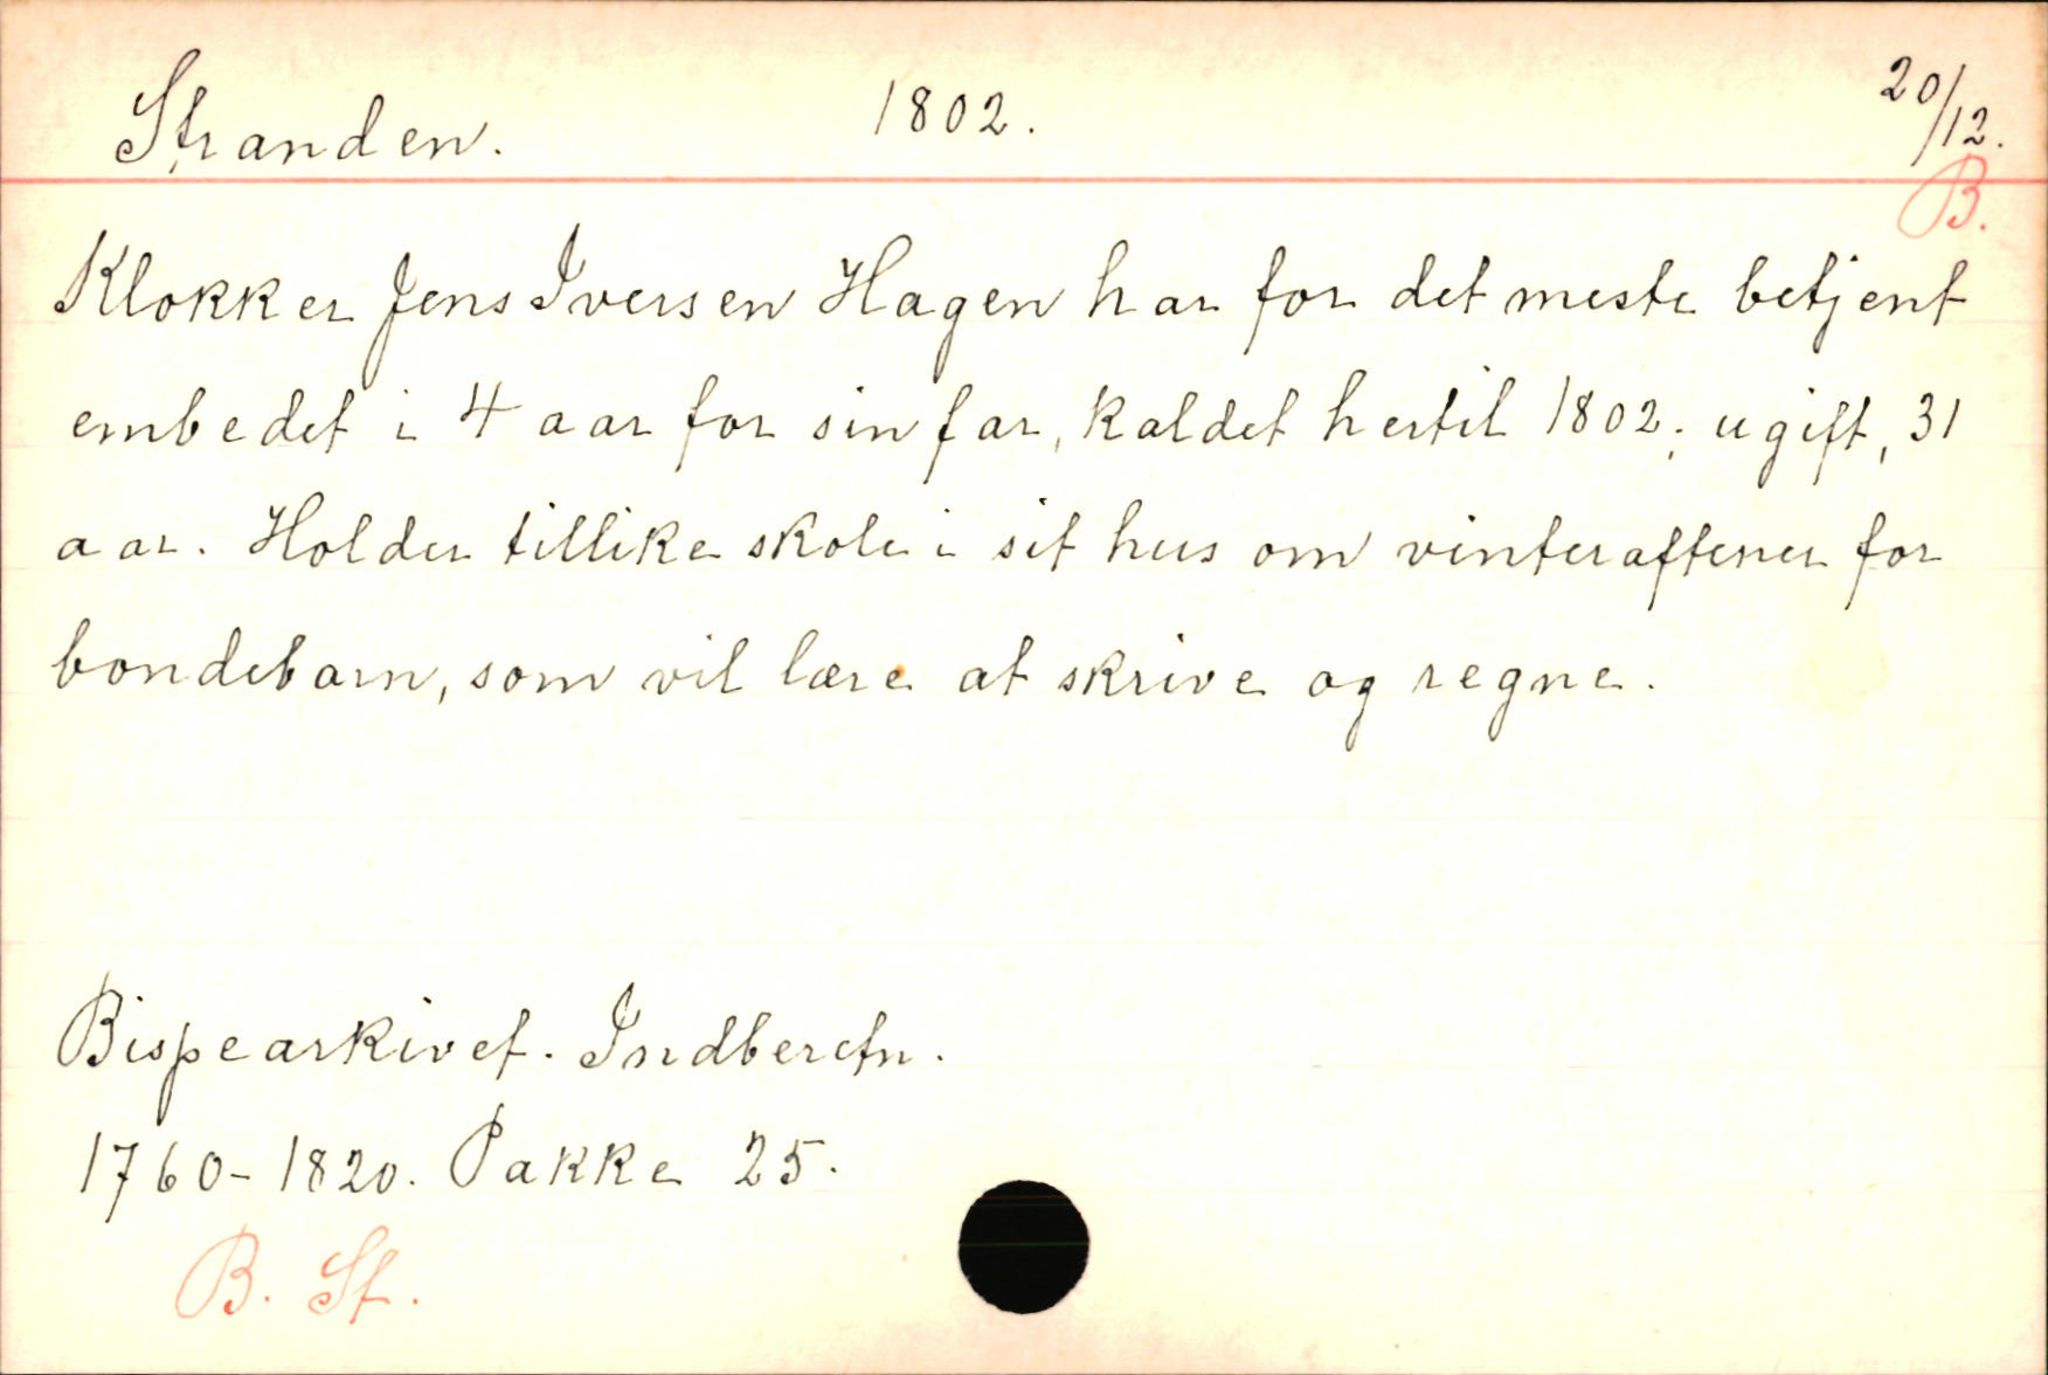 Stranden. 1802. 20/12.
B.
Klokker Jens Iversen Hagen har for det meste betjent
embedet i 4 aar for sin far, kaldet hertil 1802; ugift, 31
aar. Holder tillike skole i sit hus om vinteraftener for
bondebarn, som vil lære at skrive og regne.
Bispearkivet. Indberetn.
1760-1820. Pakke 25.
B. St.